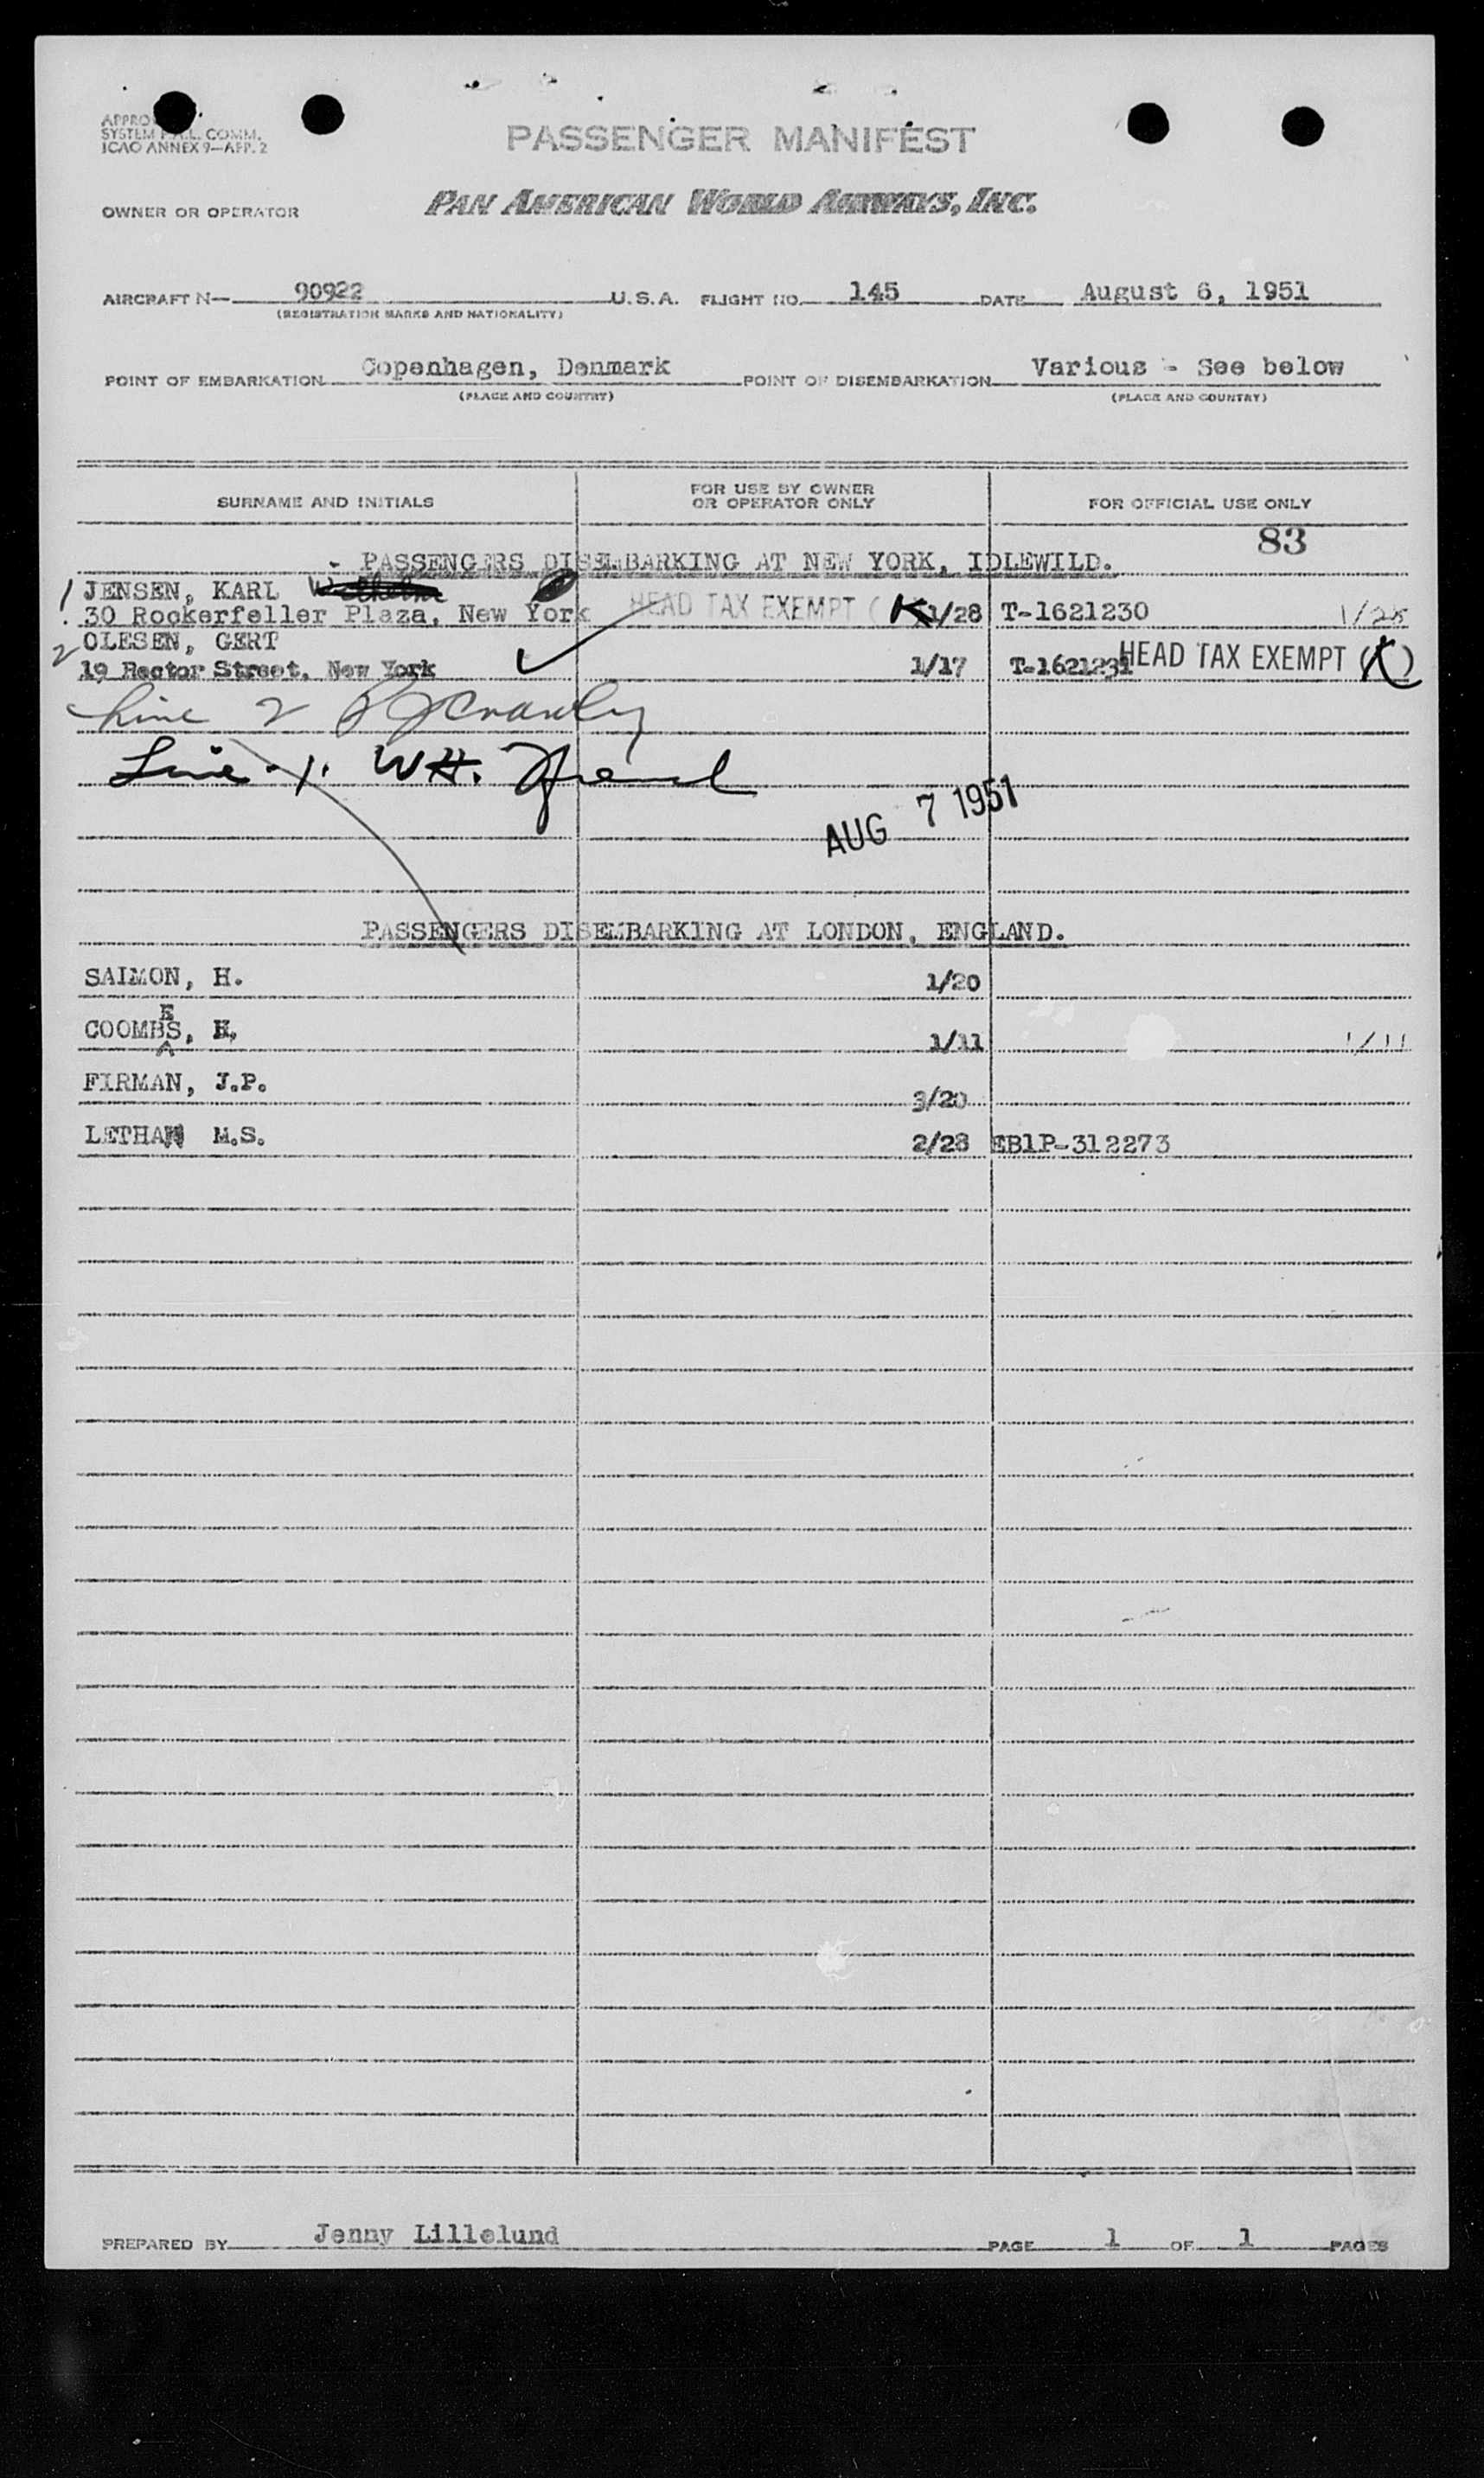 SYSTEM F.A.L. COMM.
ICAO ANNEX 9—APP. 2
PASSENGER MANIFEST
OWNER OR OPERATOR PAN AMERICAN WORLD AIRWAYS, INC.
AIRCRAFT N— 90922 U.S.A. FLIGHT NO. 145 DATE August 6, 1951
(REGISTRATION MARKS AND NATIONALITY)
POINT OF EMBARKATION Copenhagen, Denmark POINT OF DISEMBARKATION Various - See below
(PLACE AND COUNTRY) (PLACE AND COUNTRY)
SURNAME AND INITIALS FOR USE BY OWNER OR OPERATOR ONLY FOR OFFICIAL USE ONLY
83
- PASSENGERS DISEMBARKING AT NEW YORK, IDLEWILD.
1 JENSEN, KARL
30 Rockerfeller Plaza, New York HEAD TAX EXEMPT ( 1/28 T-1621230 1/28
2 OLESEN, GERT
19 Rector Street, New York 1/17 T-1621231 HEAD TAX EXEMPT ( )
Line 2
Line 1. WH.
AUG 7 1951
PASSENGERS DISEMBARKING AT LONDON, ENGLAND.
SAIMON, H. 1/20
E
COOMBS, H. 1/11 1/11
FIRMAN, J.P. 3/20
M.S. 2/28 EB1P-312273
PREPARED BY Jenny Lillelund PAGE 1 OF 1 PAGES